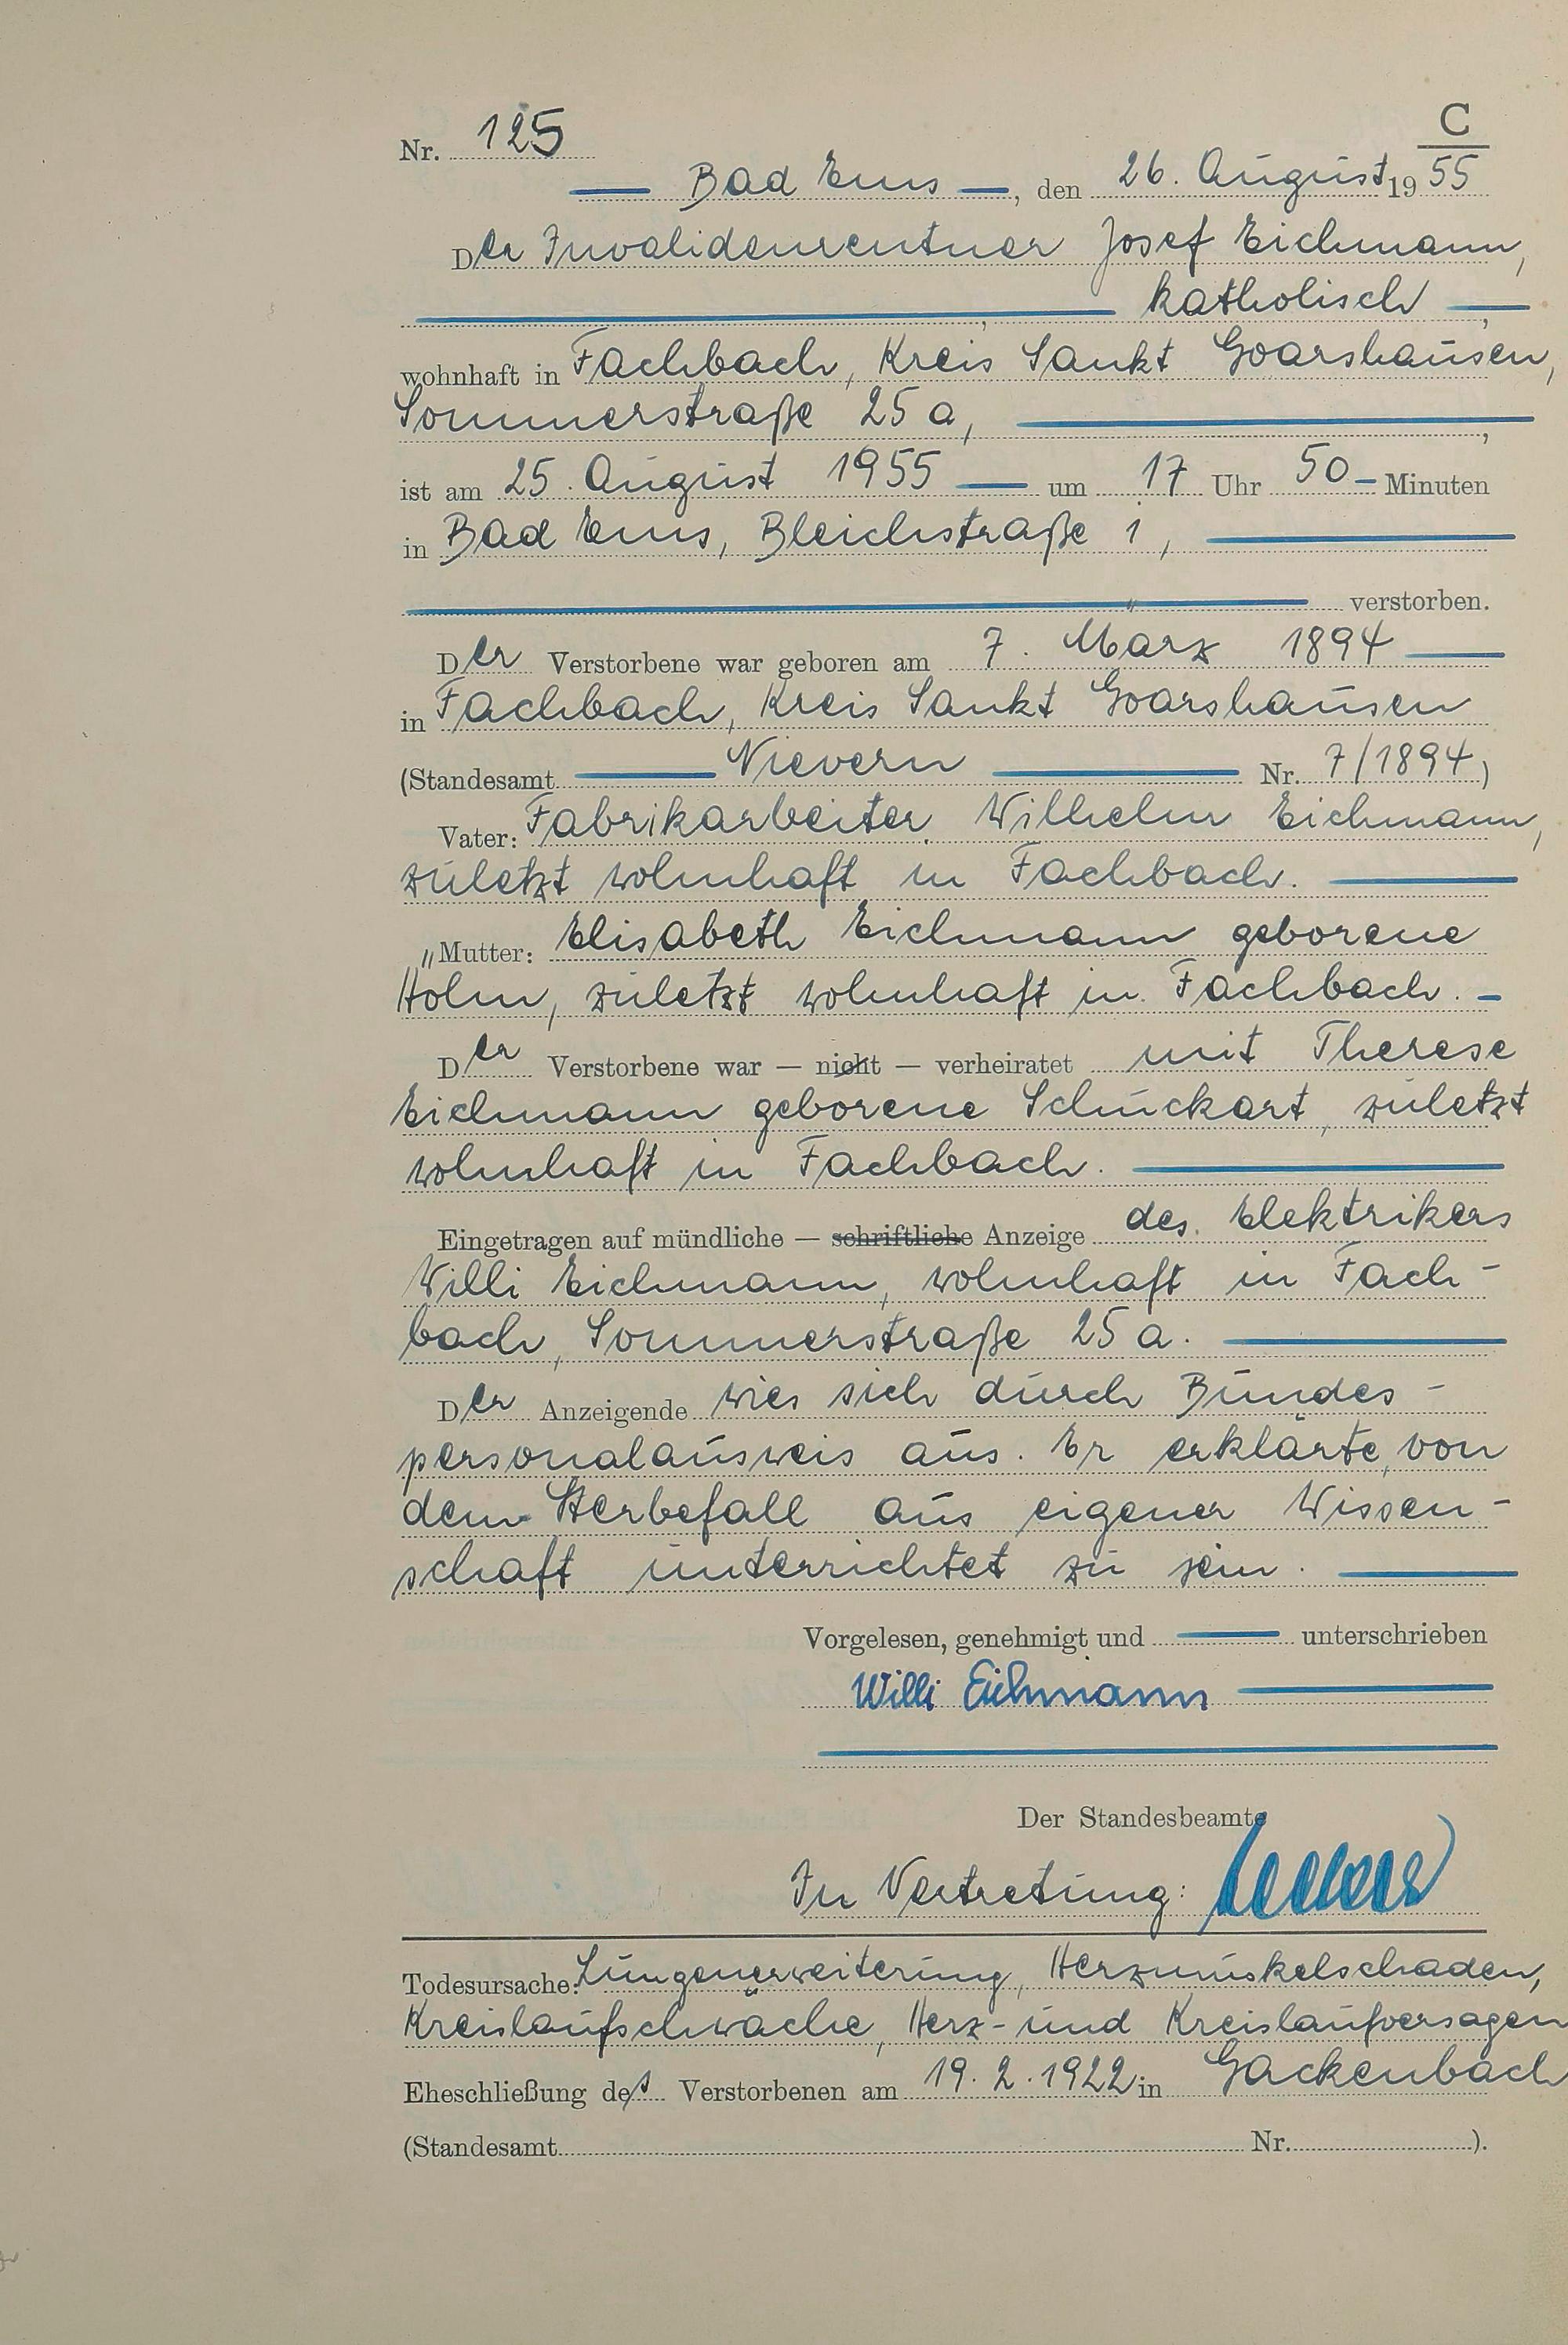 C
Nr. 125
Bad Ems, den 26. August 1955
Der Invalidenrentner Josef Eichmann,
katholisch,
wohnhaft in Fachbach, Kreis Sankt Goarshausen,
Sommerstraße 25 a,
ist am 25. August 1955 um 17 Uhr 50 Minuten
in Bad Ems, Bleichstraße 1,
verstorben.
Der Verstorbene war geboren am 7. März 1894
in Fachbach, Kreis Sankt Goarshausen
(Standesamt Nievern Nr. 7/1894)
Vater: Fabrikarbeiter Wilhelm Eichmann,
zuletzt wohnhaft in Fachbach.
Mutter: Elisabeth Eichmann geborene
Holm, zuletzt wohnhaft in Fachbach. –
Der Verstorbene war — nicht — verheiratet mit Therese
Eichmann geborene Schuckart, zuletzt
wohnhaft in Fachbach.
Eingetragen auf mündliche — schriftliche Anzeige des Elektrikers
Willi Eichmann, wohnhaft in Fach-
bach, Sommerstraße 25 a.
Der Anzeigende wies sich durch Bundes-
personalausweis aus. Er erklärte, von
dem Sterbefall aus eigener Wissen-
schaft unterrichtet zu sein.
Vorgelesen, genehmigt und unterschrieben
Willi Eichmann
Der Standesbeamte
In Vertretung:
Todesursache: Lungenerweiterung, Herzmuskelschaden,
Kreislaufschwäche, Herz- und Kreislaufversagen
Eheschließung des Verstorbenen am 19. 2. 1922 in Gackenbach
(Standesamt Nr. ).